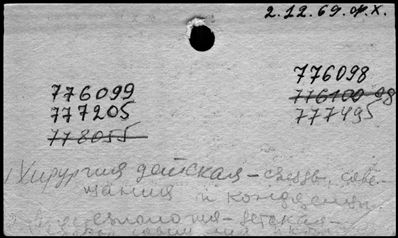 2.12.69.
776099
777205
778055
776098
776100
777495
1) Хирургия детская – съезды, сове-
щания и конференции
детская –